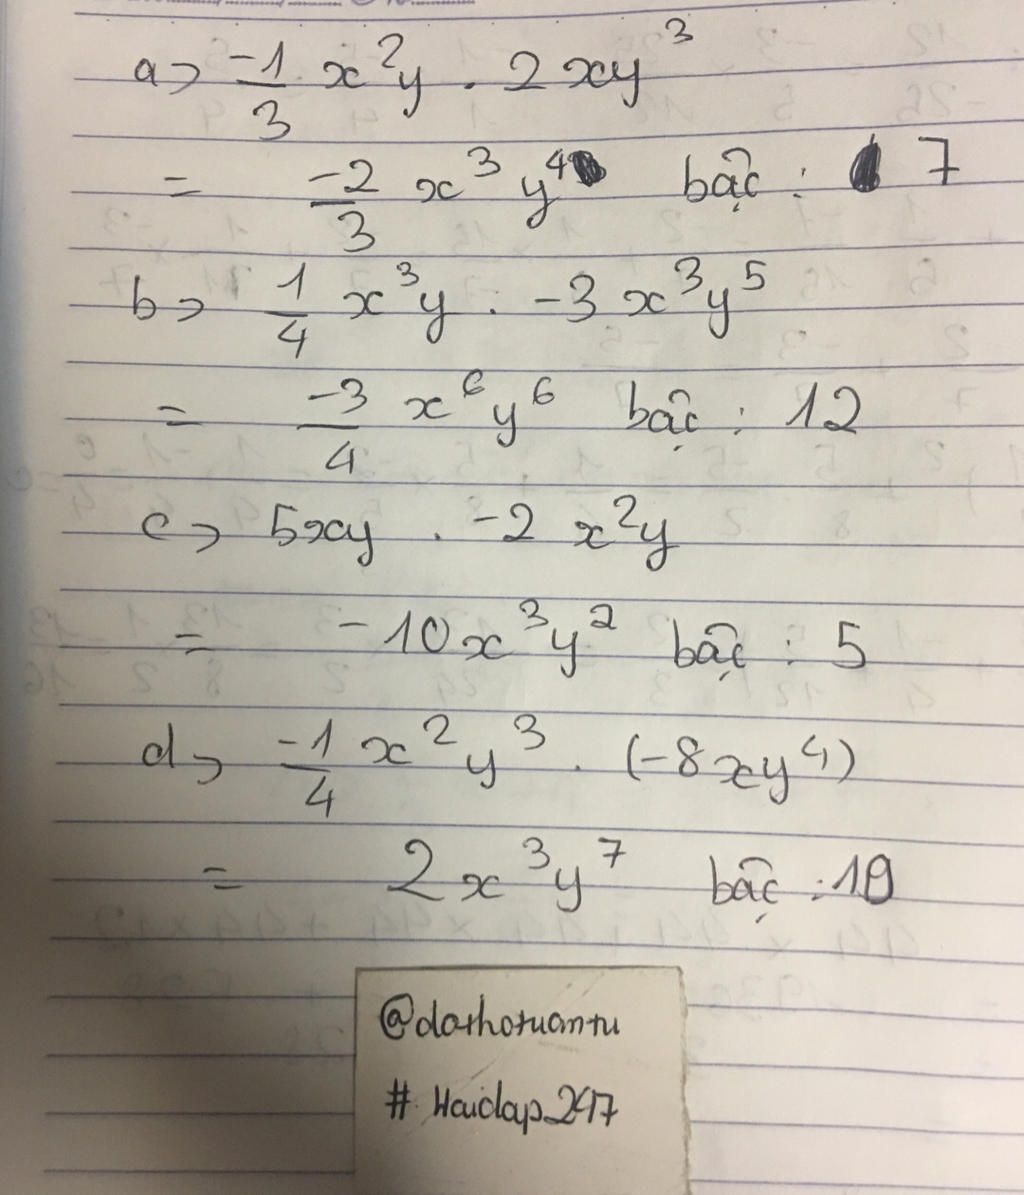 a> -1/3 x²y . 2xy³
= -2/3 x³y⁴ bậc : 7
b> 1/4 x³y . -3x³y⁵
= -3/4 x⁶y⁶ bậc : 12
c> 5xy . -2 x²y
= -10x³y² bậc : 5
d> -1/4 x²y³ . (-8xy⁴)
= 2x³y⁷ bậc : 10
@dathotuantu
# Haidap_247